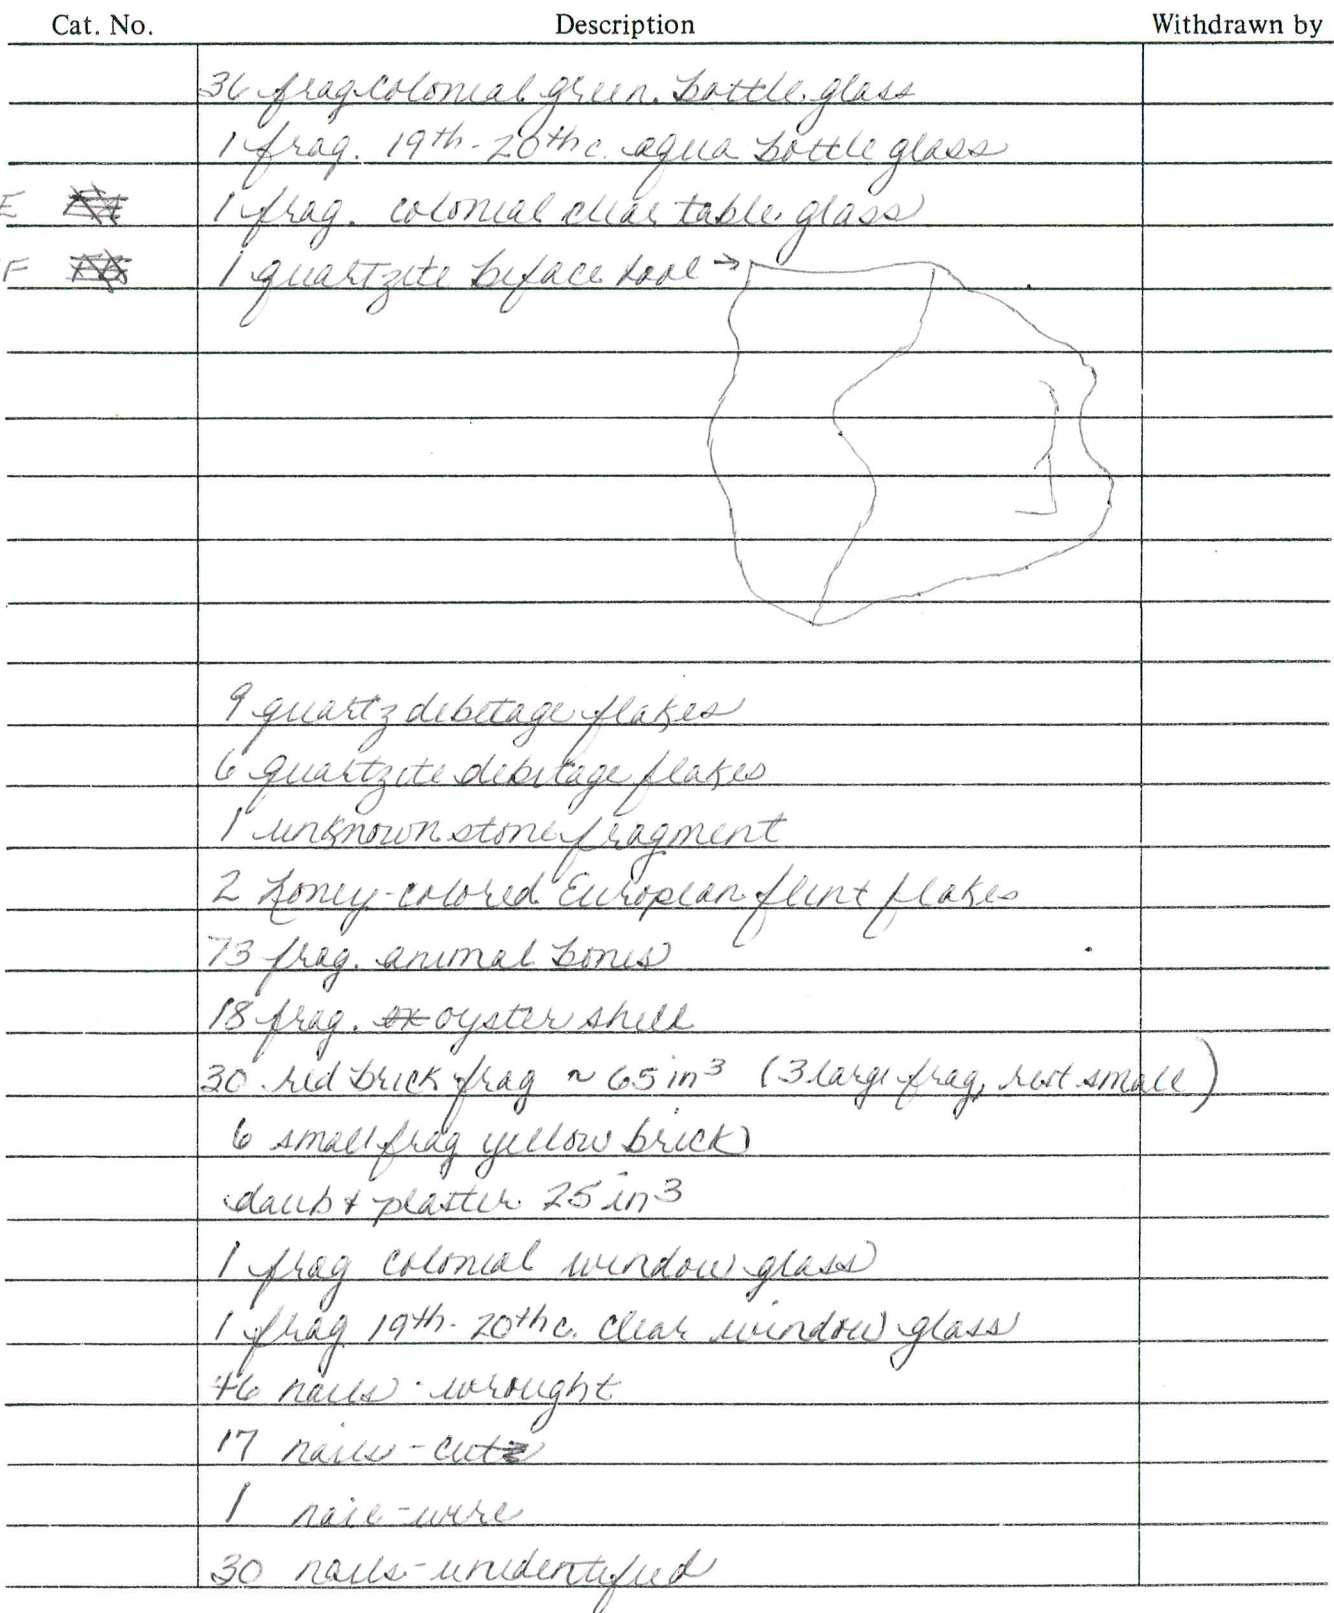 Cat. No. Description Withdrawn by
36 frag colonial green bottle glass
1 frag. 19th-20th c. aqua bottle glass
E 1 frag. colonial clear table glass
F 1 quartzite biface tool →
9 quartz debitage flakes
6 quartzite debitage flakes
1 unknown stone fragment
2 honey-colored European flint flakes
73 frag. animal bones
18 frag. oyster shell
30 red brick frag ~ 65 in³ (3 large frag, rest small)
6 small frag yellow brick
daub & plaster 25 in³
1 frag colonial window glass
1 frag 19th-20th c. clear window glass
nails - wrought
17 nails - cut
1 nail - wire
30 nails - unidentified